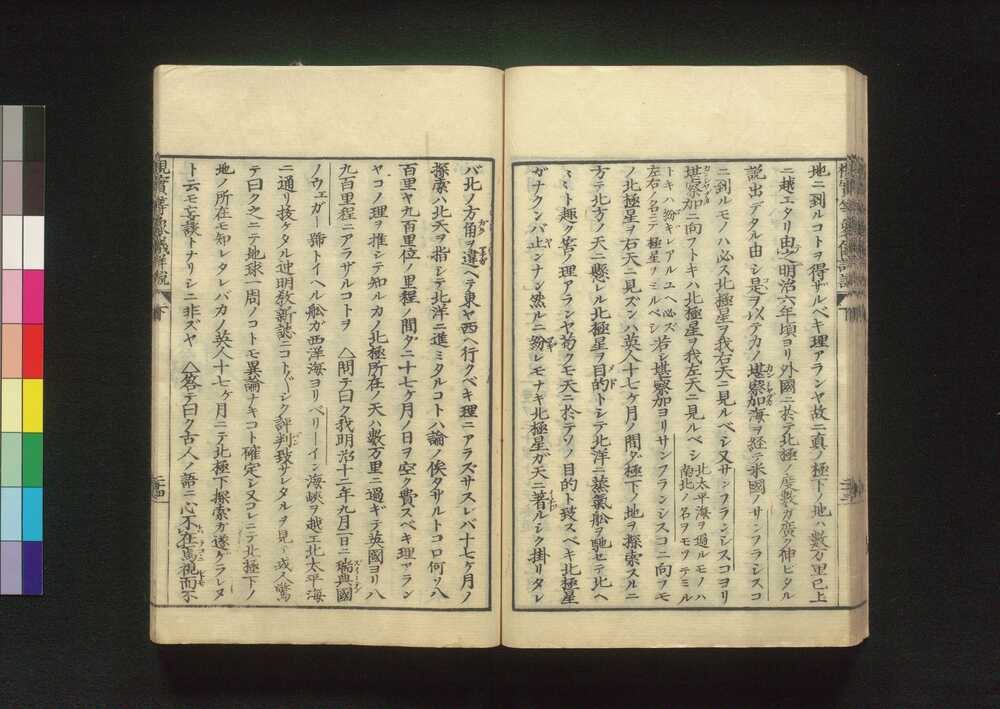 地ニ到ルコトヲ得ザルベキ理アランヤ故ニ真ノ極下ノ地ハ数万里已上
ニ越エタリ由之明治六年頃ヨリ外國ニ於テ北極ノ度數ガ廣ク伸ビタル
説出デタル由シ是ヲ以テカノ堪察加海ヲ経テ米國ノサンフランシスコ
ニ到ルモノハ必ス北極星ヲ我右天ニ見ルベシ又サンフランシスコヨリ
堪察加ニ向フトキハ北極星ヲ我左天ニ見ルベシ
北太平海ヲ通ルモノハ
南北ノ名ヲモツテミル
トキハ紛ギレアルユヘ必ズ
左右ノ名ニテ極星ヲミルベシ
若シ堪察加ヨリサンフランシスコニ向フモ
ノ北極星ヲ右天ニ見ズンハ英人十七ケ月ノ間ダ極下ノ地ヲ探索スルニ
方テ北方ノ天ニ懸レル北極星ヲ目的トシテ北洋ニ蒸氣舩ヲ馳セテ北ヘ
ミト趣ク筈ノ理アランヤ苟クモ天ニ於テソノ目的ト致スベキ北極星
ガナクンバ止ンナン然ルニ紛レモナキ北極星ガ天ニ著ルシク掛リタレ
バ北ノ方角ヲ違ヘテ東ヤ西ヘ行クベキ理ニアラズサスレバ十七ケ月ノ
探索ハ北天ヲ指シテ北洋ニ進ミタルコトハ論ノ俟タザルトコロ何ソ八
百里ヤ九百里位ノ里程ノ間ダニ十七ケ月ノ日ヲ空ク費スベキ理アラン
ヤコノ理ヲ推シテ知ルカノ北極所在ノ天ハ數万里ニ過ギテ英國ヨリ八
九百里程ニアラザルコトヲ 問テ曰ク我明治十二年九月二日ニ瑞典國
ノウェガー號トイヘル舩ガ西洋海ヨリベーリーイン海峽ヲ越エ北太平海
ニ通リ拔ケタル迚明教新誌ニコトバーシク評判致サレタルヲ見テ或人驚
テ曰ク之ニテ地球一周ノコトモ異論ナキコト確定シ又コレニテ北極下ノ
地ノ所在モ知レタレバカノ英人十七ケ月ニテ北極下探索ガ遂ゲラレタ
ト云モ妄談トナリシニ非ズヤ 答テ曰ク古人ノ語ニ心不在焉視而不
視實等象儀詳説
下